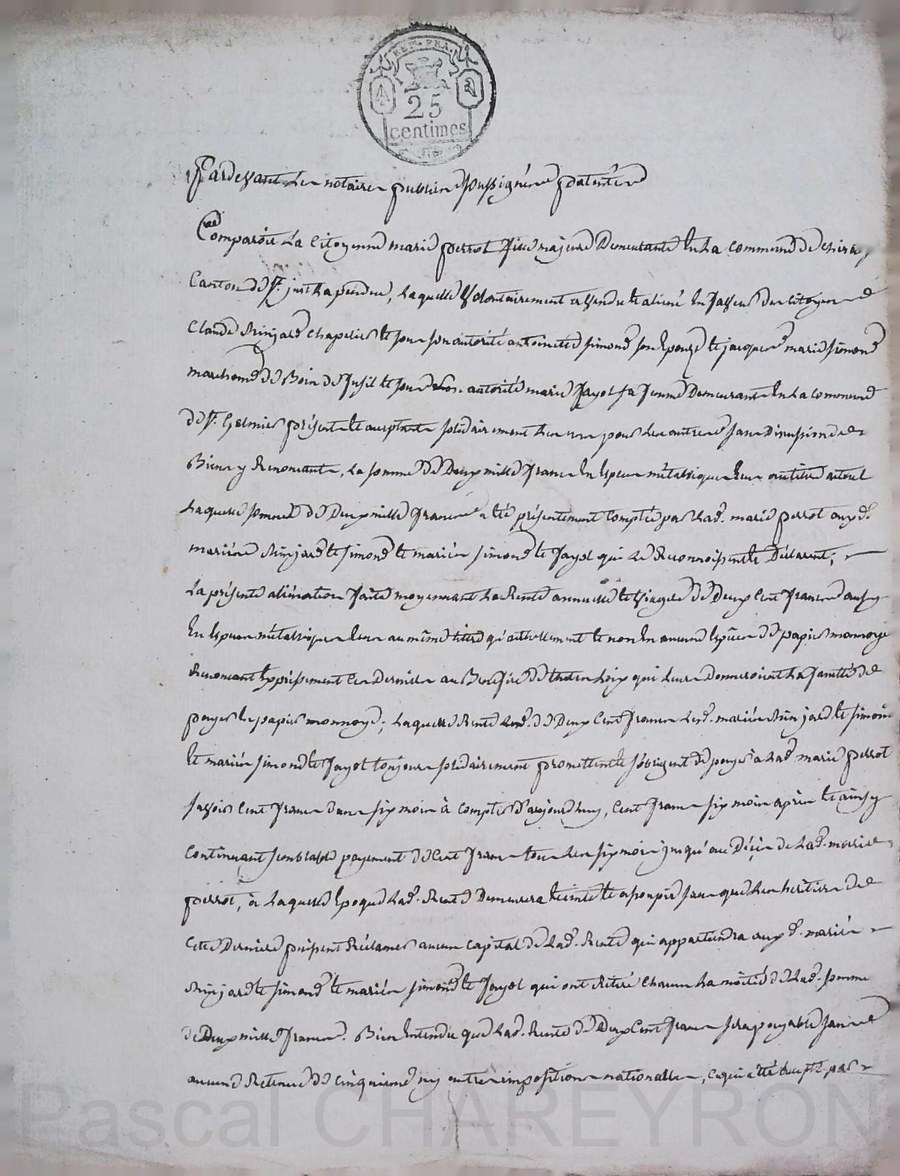 REP. FRA.
25
centimes
Pardevant Les notaires publics Soussignés patentés
Comparoit La Citoyenne marie perrot fille majeure Demeurante En La commune de
Canton de St. just La pendue, Laquelle Volontairement a vendu et aliéné En faveur du Citoyen
Claude Chapelier et sous son autorité antoinette simond son Epouse et jacques marie simond
marchand de Bois de fusil et sous son autorité marie Jayol sa femme Demeurants En La commune
de St. Galmier présents et acceptants solidairement L'un pour L'autre sans Division de
Biens y Renonçants, La somme de Deux mille francs En Espèces métalliques
Laquelle somme de Deux mille francs a été présentement comptée par Lad. marie perrot auxd.
mariés et simond et mariés simond et Jayol qui Le Reconnoissent et Déclarent;
La présente aliénation faite moyennant La Rente annuelle et viagère de Deux Cent francs aussy
En Espèces métalliques au même titre qu'actuellement et non En aucune Espèce de papier monnoye
Renonçant Expressement Ces Derniers au Bénéfice de toutes Loix qui Leur Donneroient La faculté de
payer En papier monnoye; Laquelle Rente de Deux Cent francs Lesd. mariés et simond
et mariés simond et Jayol toujours solidairement promettent et s'obligent de payer à Lad. marie perrot
sçavoir Cent francs dans six mois à compter d'aujourd'huy, Cent francs six mois après et ainsy
Continuant semblable payement de Cent francs tous Les six mois jusqu'au Décès de Lad. marie
perrot, à Laquelle Epoque Lad. Rente Demeurera Eteinte et assoupie sans que Les héritiers de
Cette Dernière puissent Réclamer aucun Capital de Lad. Rente qui appartiendra auxd. mariés
et simond et mariés simond et Jayol qui ont Retiré Chacun La moitié de Lad. somme
de Deux mille francs. Bien Entendu que Lad. Rente de Deux Cent francs sera payable sans
aucune Retenue de cinquième ny autres impositions nationalles, Ce qui a été accepté par
Pascal CHAREYRON